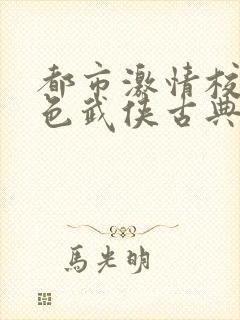 都市激情校
色武侠古典
馬光明